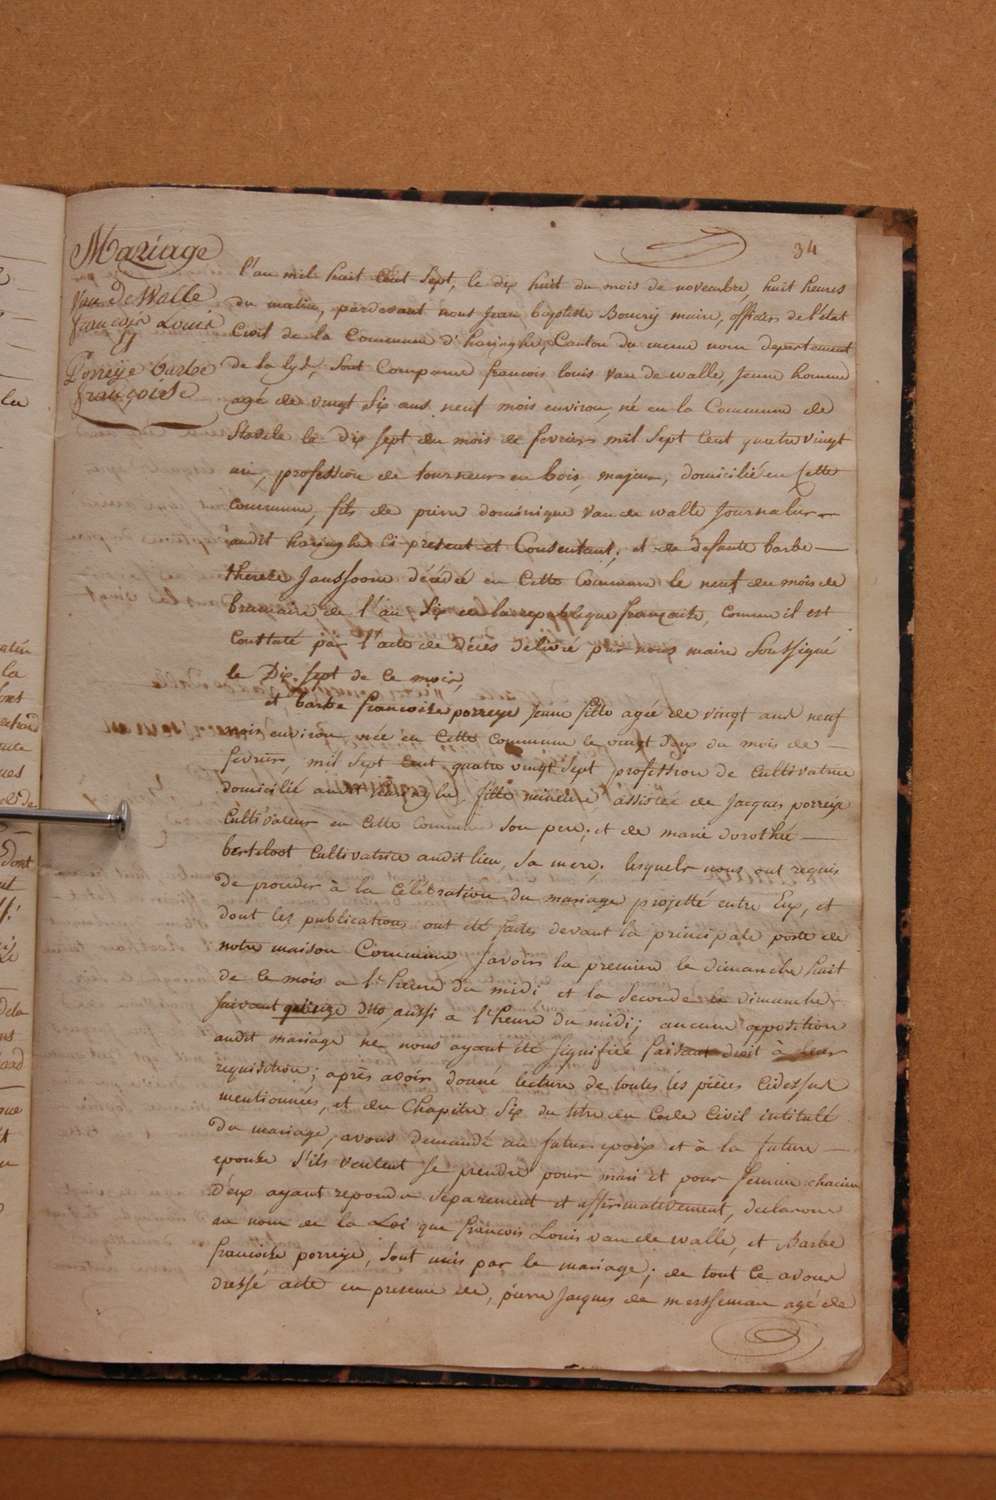 34
Mariage
Van de Walle
françois Louis
&
Porreÿe barbe
françoise
l'an mil huit cent sept, le dix huit du mois de novembre, huit heures
du matin, pardevant nous Jean baptiste Bourrij maire, officier de l'état
Civil de la Commune d'haringhe, Canton du meme nom departement
de la lys, sont Comparus francois louis van de walle, Jeune homme
agé de vingt six ans neuf mois environ, né en la Commune de
Stavele le dix sept du mois de fevrier mil sept cent quatre vingt
un, profession de tourneur en bois, majeur, domicilié en cette
commune, fils de pierre dominique van de walle Journalier
audit haringhe ci present et Consentant; et de defunte barbe
therese Janssoone décédée en cette Commune le neuf du mois de
brumaire de l'an six de la republique françoise, comme il est
constaté par l'acte de décès délivré par nous maire soussigné
le Dix sept de ce mois,
et barbe francoise porreye Jeune fille agée de vingt ans neuf
mois environ née en cette commune le vingt deux du mois de
fevrier, mil sept cent quatre vingt sept profession de cultivatrice
domicilié audit haringhe fille mineure assistée de Jacques porreije
Cultivateur en cette commune son pere, et de marie dorothée
berteloot Cultivatrice audit lieu, sa mere, lesquels nous ont requis
de proceder à la célébration du mariage projetté entre Eux, et
dont les publications ont été faites devant la principale porte de
notre maison Commune savoir la premiere le dimanche huit
de ce mois a l'heure du midi et la seconde le dimanche
suivant quinze dito, aussi a l'heure du midi; aucune opposition
audit mariage ne nous ayant été signifiée faisant droit à leur
requisition; après avoir donné lecture de toutes les pièces cidessus
mentionnées, et du Chapitre six du titre du Code Civil intitulé
Du mariage, avons demandé au futur epoux et à la future
epouse s'ils veulent se prendre pour mari et pour femme chacun
D'eux ayant repondu séparement et affirmativement, declarons
au nom de la Loi que francois Louis van de walle, et Barbe
francoise porreye, sont unis par le mariage; de tout ce avons
dressé acte en présence de, pierre Jacques de messeman agé de